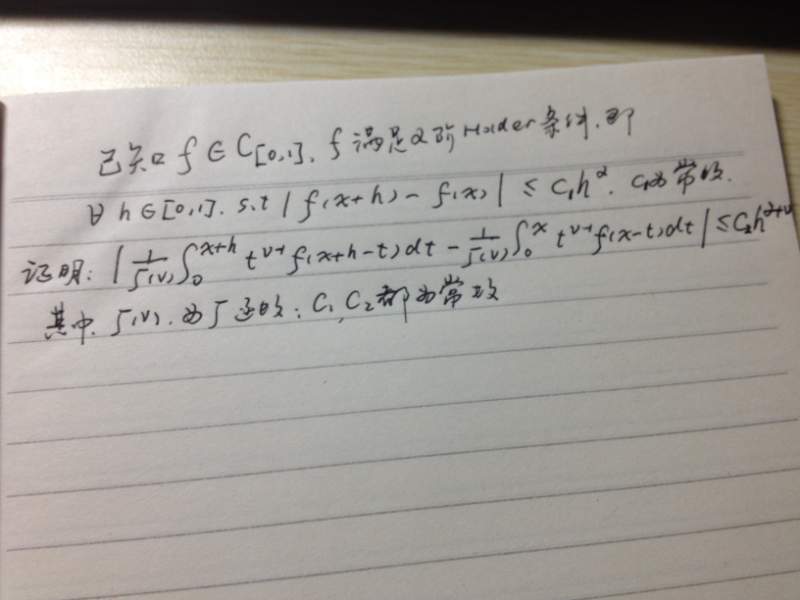 已知 f ∈ C[0,1]. f 满足α阶 Holder 条件. 即
∀ h∈[0,1]. s.t | f(x+h) - f(x) | ≤ C₁h^α. C₁为常数.
证明: | 1/Γ(v) ∫₀^{x+h} t^{v-1} f(x+h-t)dt - 1/Γ(v) ∫₀^x t^{v-1} f(x-t)dt | ≤ C₂h^{α+v}
其中. Γ(v). 为Γ函数; C₁, C₂都为常数